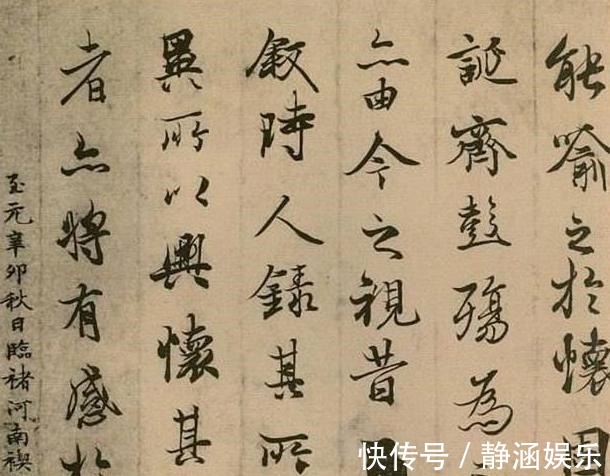 能喻之於懷
誕齊彭殤為
亦由今之視昔
敘時人錄其所
異所以興懷其
者亦將有感於
至元辛卯秋日臨褚河南禊
快传号 / 静涵娱乐